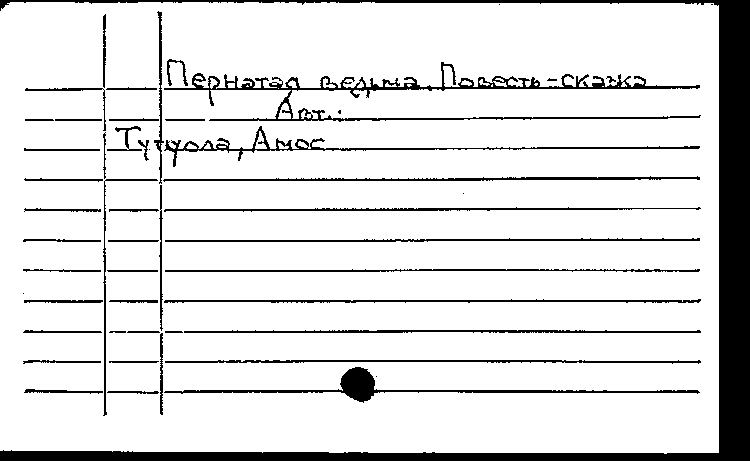 Пернатая ведьма. Повесть-сказка
Авт.:
Тутуола, Амос